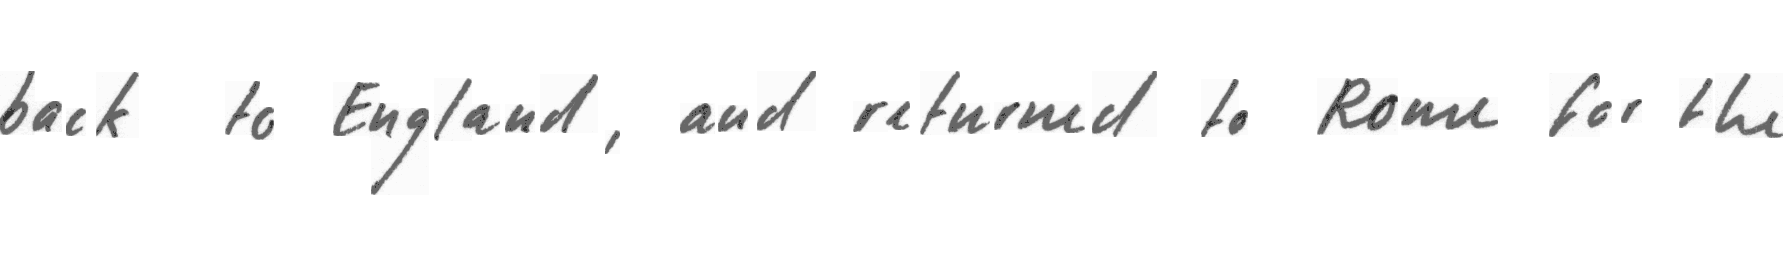 back to England, and returned to Rome for the